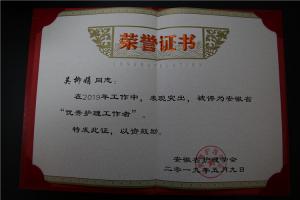 荣誉证书
同志：
在2019年工作中，表现突出，被评为安徽省
“优秀护理工作者”
特发此证，以资鼓励。
安徽省护理学会
二零一九年五月九日